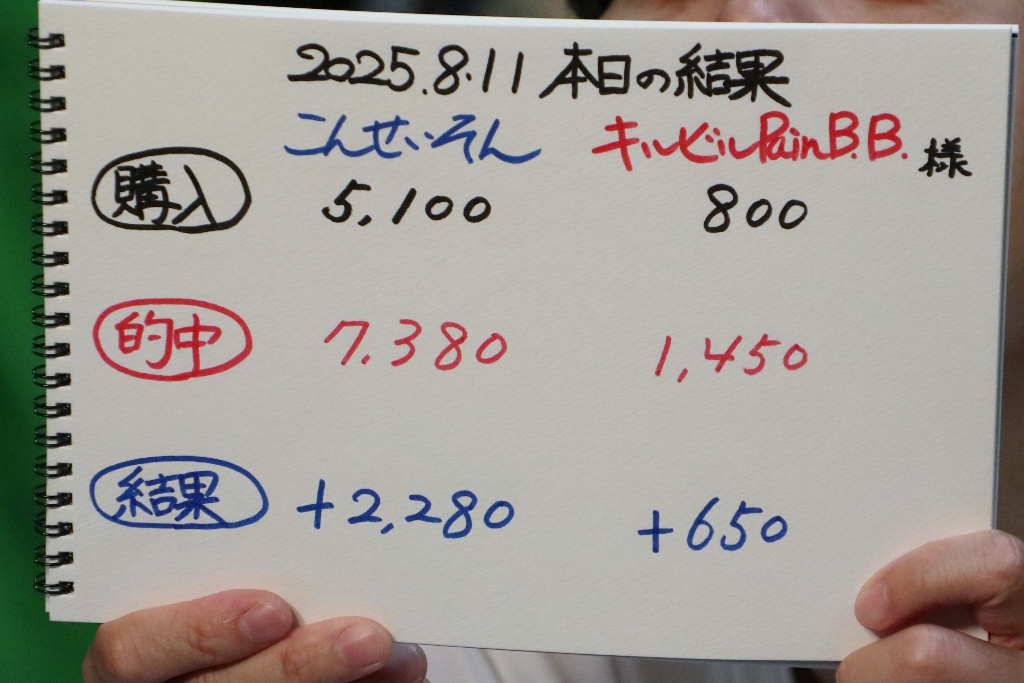 2025.8.11 本日の結果
こんせいそん キルビルPainB.B. 様
購入 5,100 800
的中 7.380 1,450
結果 +2,280 +650